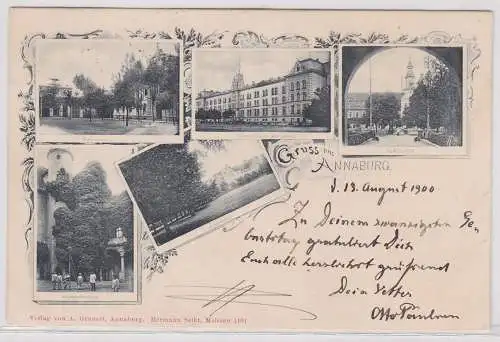 Gruss aus
ANNABURG.
d. 13. August 1900
Zu Deinem zwanzigsten Ge-
burtstag gratuliert Dich
herzlichst grüssend
Dein Vetter
Otto
Verlag von A. Grunert, Annaburg. Hermann Seibt, Meissen